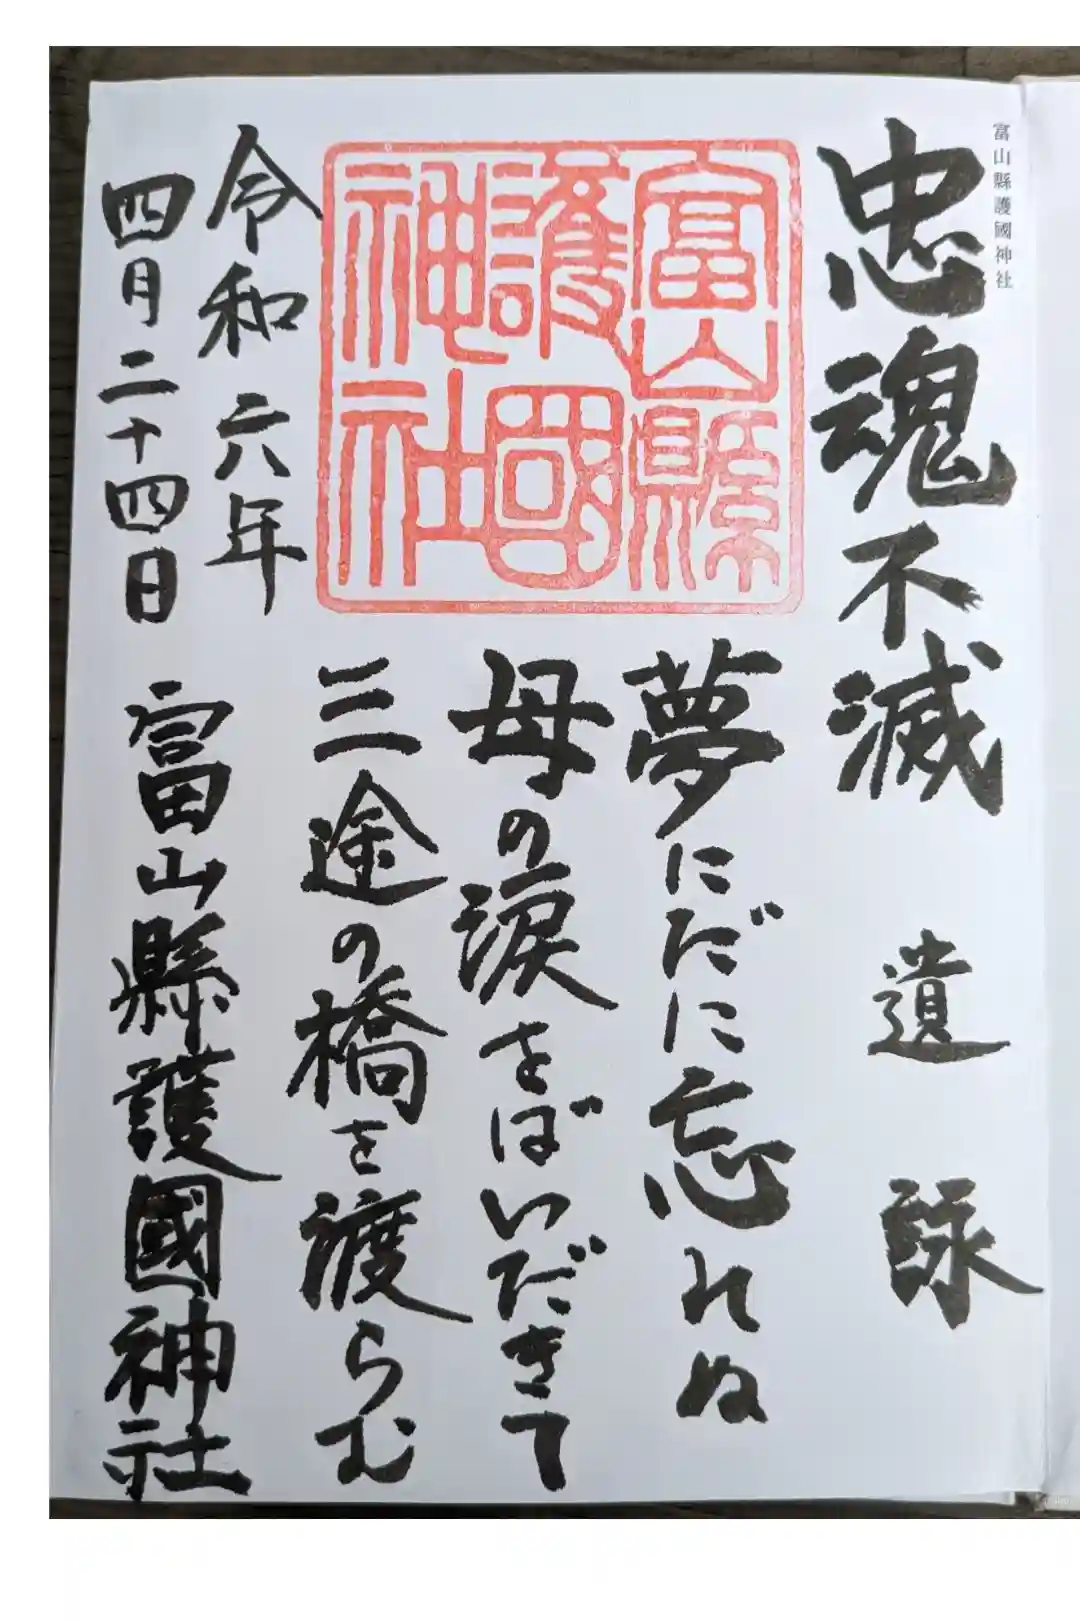 富山縣護國神社
忠魂不滅 遺詠
富山縣護國神社
夢にだに忘れぬ
母の涙をばいだきて
三途の橋を渡らむ
令和六年
四月二十四日 富山縣護國神社